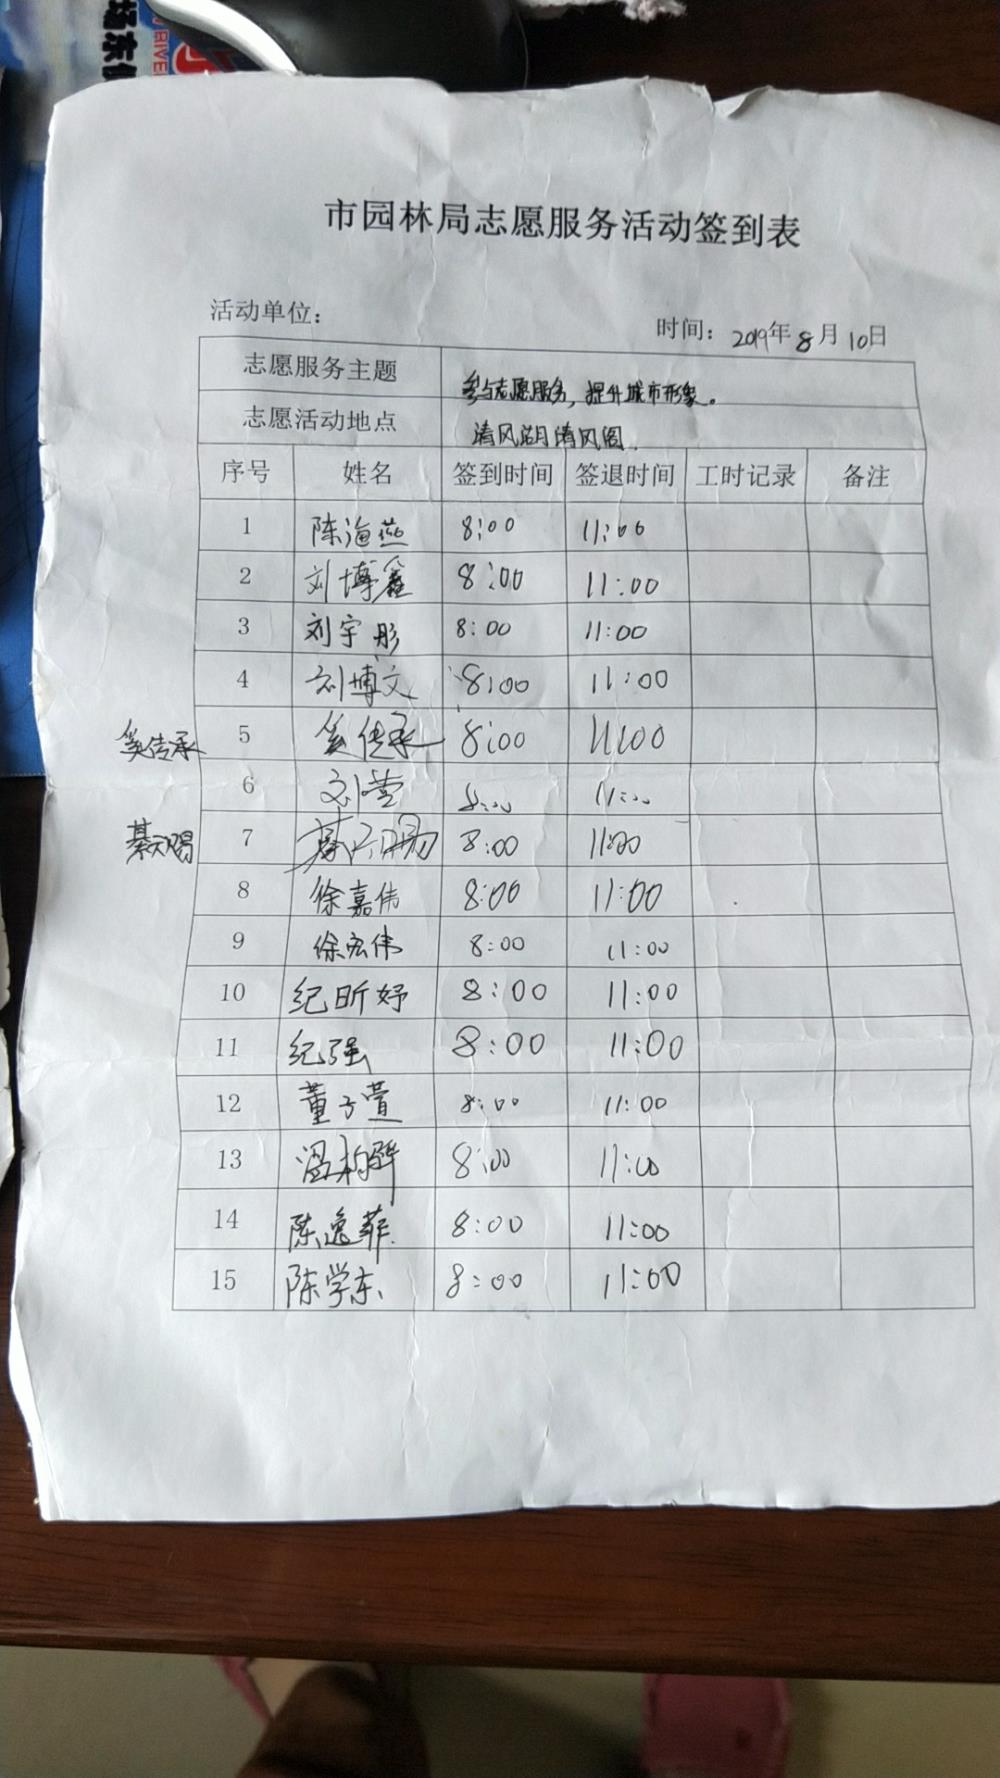 市园林局志愿服务活动签到表
活动单位：
时间：2019年8月10日
志愿服务主题 参与志愿服务，提升城市形象。
志愿活动地点 清风湖清风阁.
序号 姓名 签到时间 签退时间 工时记录 备注
1 陈海燕 8:00 11:00
2 刘博鑫 8:00 11:00
3 刘宇彤 8:00 11:00
4 刘博文 8:00 11:00
奚传承 5 奚传承 8:00 11:00
6 刘莹 8:00 11:00
綦天赐 7 綦天赐 8:00 11:00
8 徐嘉伟 8:00 11:00
9 徐宏伟 8:00 11:00
10 纪昕妤 8:00 11:00
11 纪强 8:00 11:00
12 董子萱 8:00 11:00
13 温柏骅 8:00 11:00
14 陈逸菲 8:00 11:00
15 陈学东 8:00 11:00